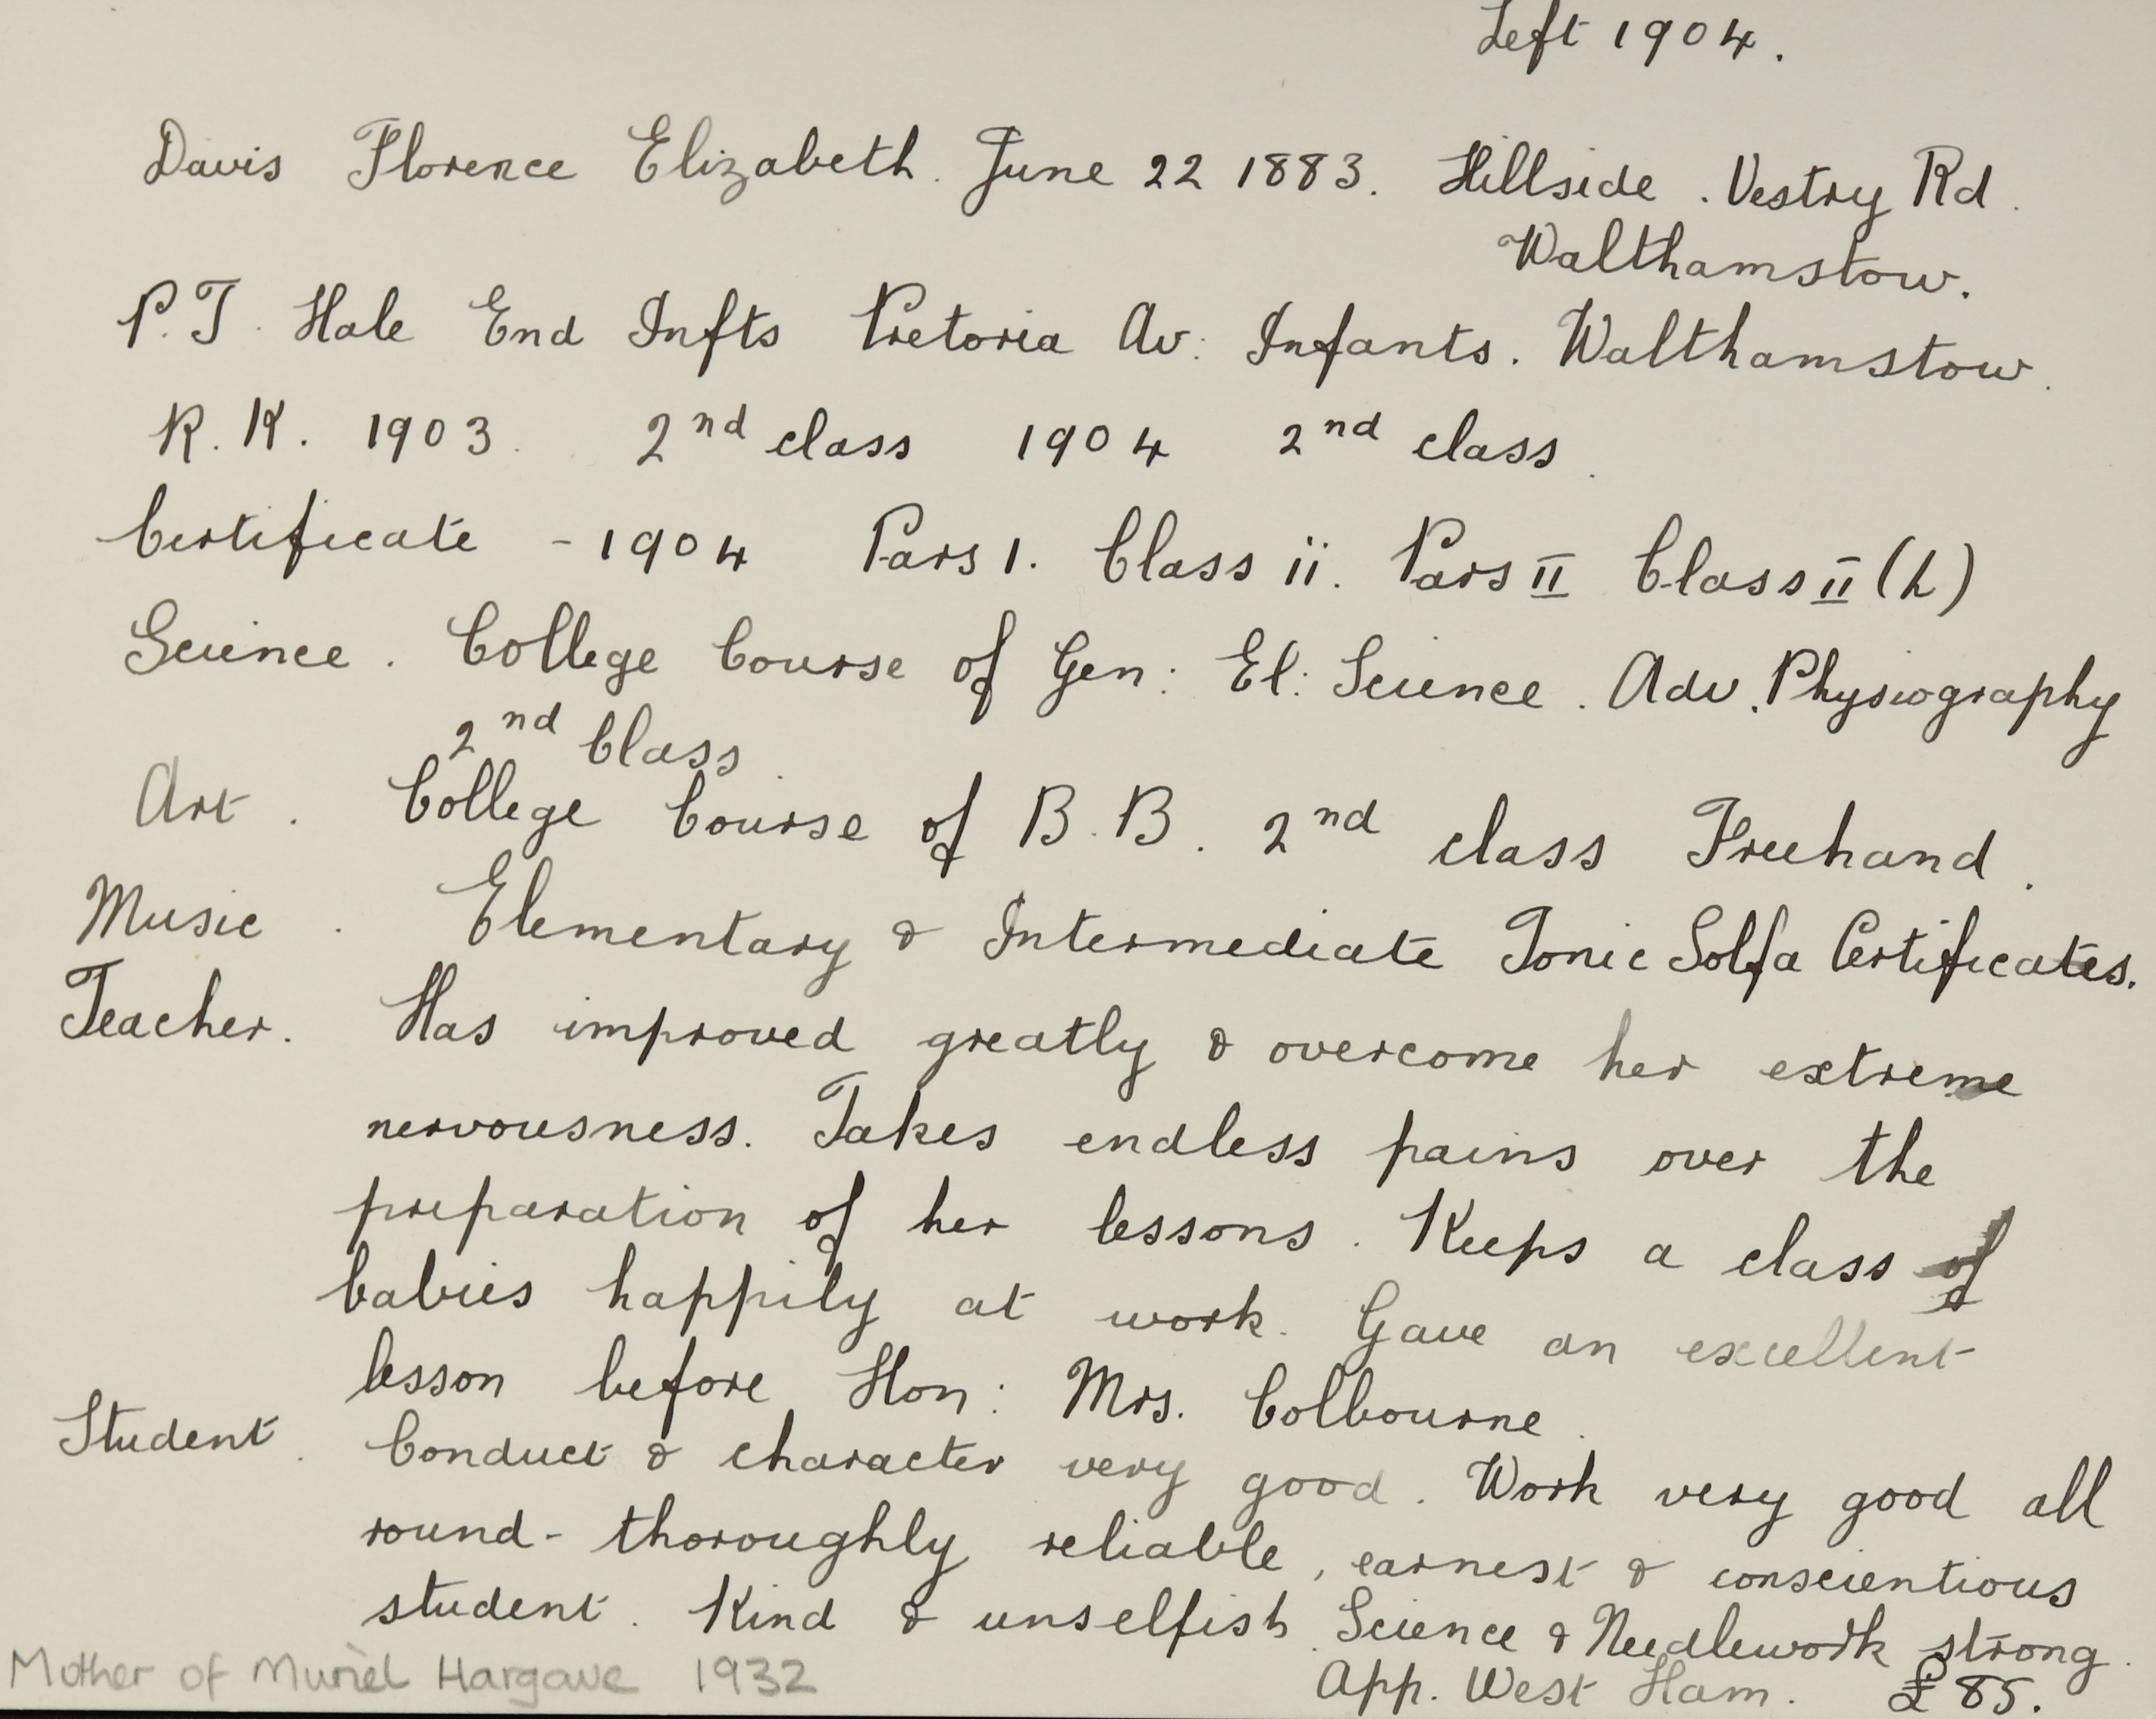 Left 1904.
Davis Florence Elizabeth. June 22 1883. Hillside. Vestry Rd.
Walthamstow.
P.T. Hale End Infts Pretoria Av: Infants. Walthamstow.
R.K. 1903. 2nd class 1904 2nd class.
Certificate - 1904 Pars 1. Class ii. Pars II Class II (h)
Science. College Course of Gen: El: Science. Adv. Physiography
2nd Class
Art. College Course of B.B. 2nd class Freehand.
Music. Elementary & Intermediate Tonic Solfa Certificates.
Teacher. Has improved greatly & overcome her extreme
nervousness. Takes endless pains over the
preparation of her lessons. Keeps a class of
babies happily at work. Gave an excellent
lesson before Hon: Mrs. Colbourne.
Student. Conduct & character very good. Work very good all
round - thoroughly reliable, earnest & conscientious
student. Kind & unselfish. Science & Needlework strong.
Mother of Muriel Hargave 1932 App. West Ham. £85.